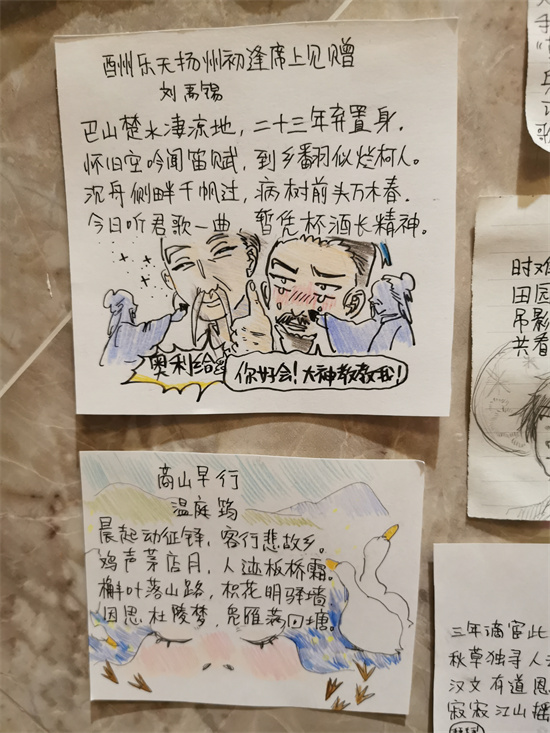 酬乐天扬州初逢席上见赠
刘禹锡
巴山楚水凄凉地，二十三年弃置身.
怀旧空吟闻笛赋，到乡翻似烂柯人。
沉舟侧畔千帆过，病树前头万木春.
今日听君歌一曲，暂凭杯酒长精神.
奥利给
你好会！大神教教我！
时难
田园
吊影
共看
商山早行
温庭筠
晨起动征铎，客行悲故乡。
鸡声茅店月，人迹板桥霜。
槲叶落山路，枳花明驿墙
因思杜陵梦，凫雁满回塘。
三年谪宦此
秋草独寻人
汉文有道恩
寂寂江山摇